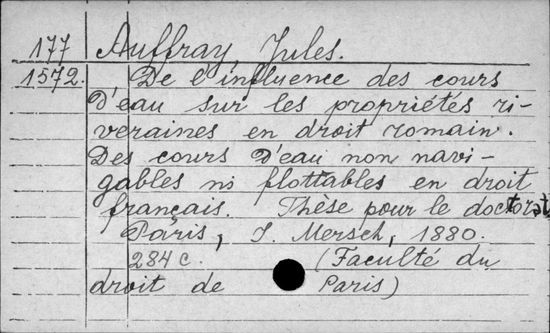 177 Auffray Jules.
1572. De l'influence des cours
d'eau sur les propriétés ri-
veraines en droit romain.
Des cours d'eau non navi-
gables ni flottables en droit
français. Thèse pour le doctorat,
Paris, J. Mersch, 1880.
284 c. (Faculté du
droit de Paris)